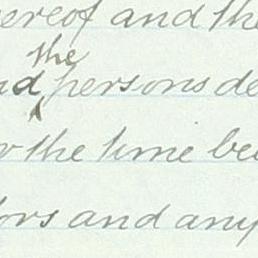 hereof and the
the
d persons de
r the time bei
tors and any